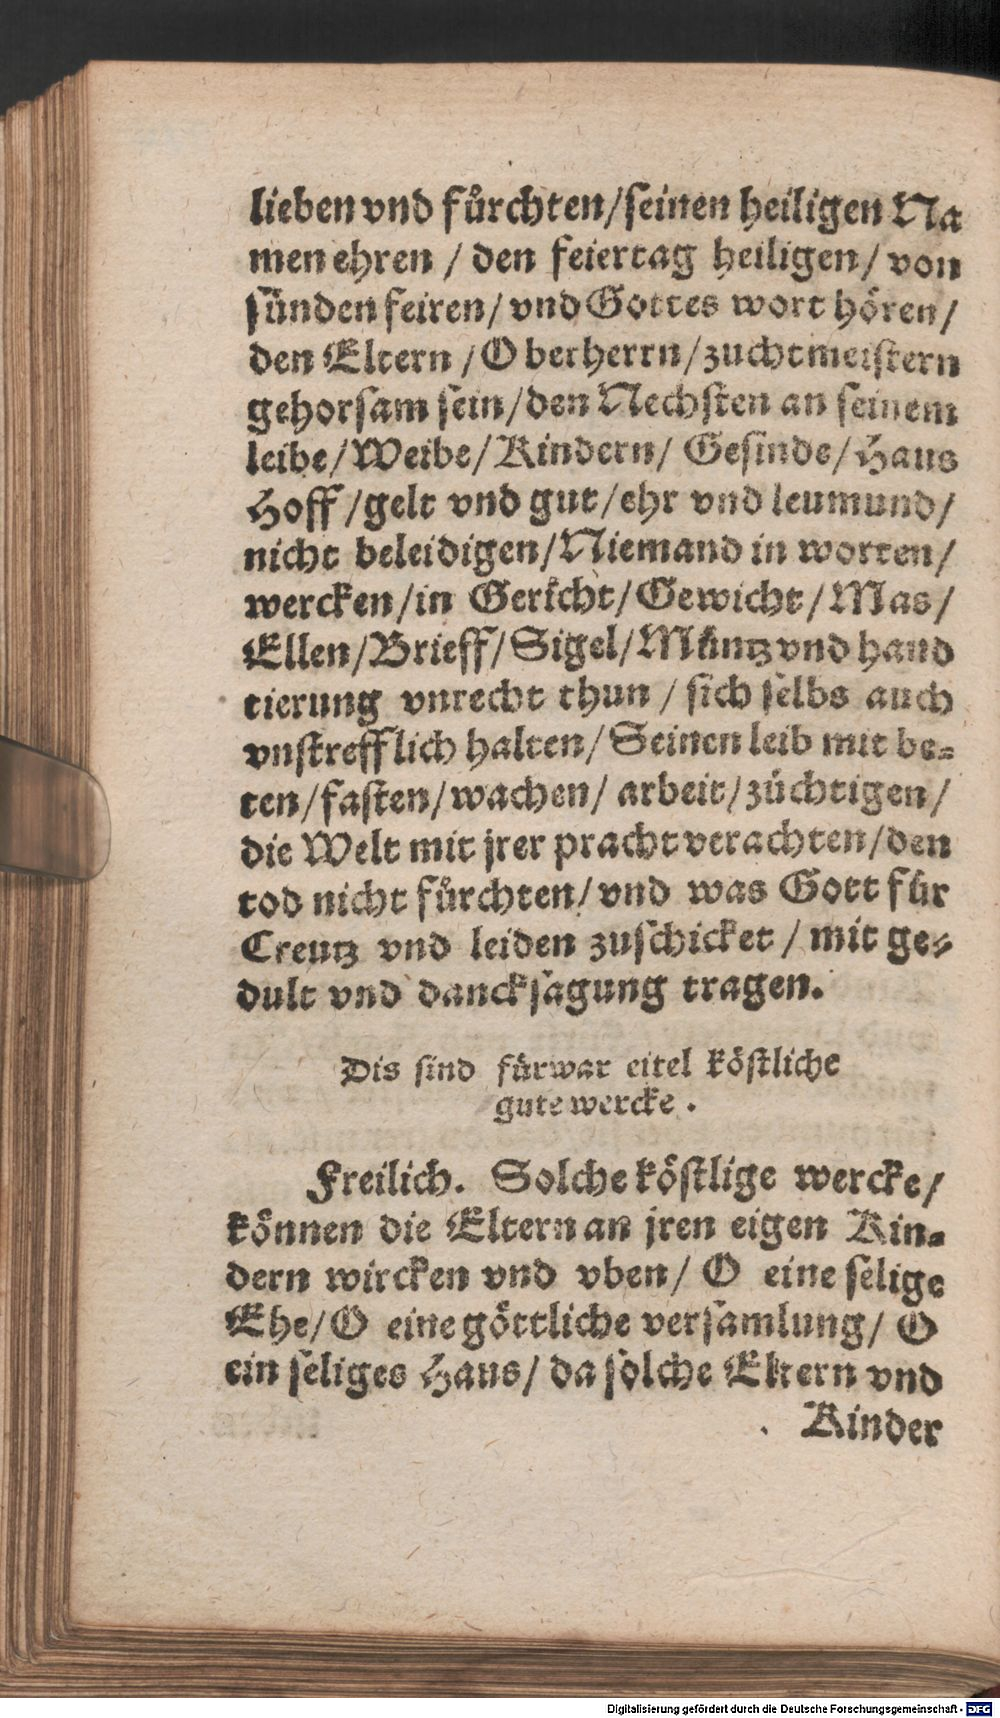 lieben vnd fuͤrchten/seinen heiligen Na
men ehren / den feiertag heiligen/ von
suͤnden feiren/ vnd Gottes wort hoͤren/
den Eltern /Oberherrn/zuchtmeistern
gehorsam sein/den Nechsten an seinem
leibe/Weibe/Kindern/ Gesinde/Haus
Hoff /gelt vnd gut/ehr vnd leumund/
nicht beleidigen/Niemand in worten/
wercken/in Gericht/Gewicht/Mas/
Ellen/Brieff/Sigel/Muͤntz vnd hand
tierung vnrecht thun / sich selbs auch
vnstrefflich halten/ Seinen leib mit be-
ten/fasten/wachen/ arbeit/zuͤchtigen/
die Welt mit jrer pracht verachten/den
tod nicht fuͤrchten/vnd was Gott fuͤr
Creutz vnd leiden zuschicket / mit ge-
dult vnd dancksagung tragen.
Dis sind fuͤrwar eitel koͤstliche
gute wercke.
Freilich. Solche koͤstlige wercke/
koͤnnen die Eltern an jren eigen Kin-
dern wircken vnd vben/ O eine selige
Ehe/O eine goͤttliche versamlung/ O
ein seliges Haus/ da solche Eltern vnd
Kinder
Digitalisierung gefördert durch die Deutsche Forschungsgemeinschaft - DFG